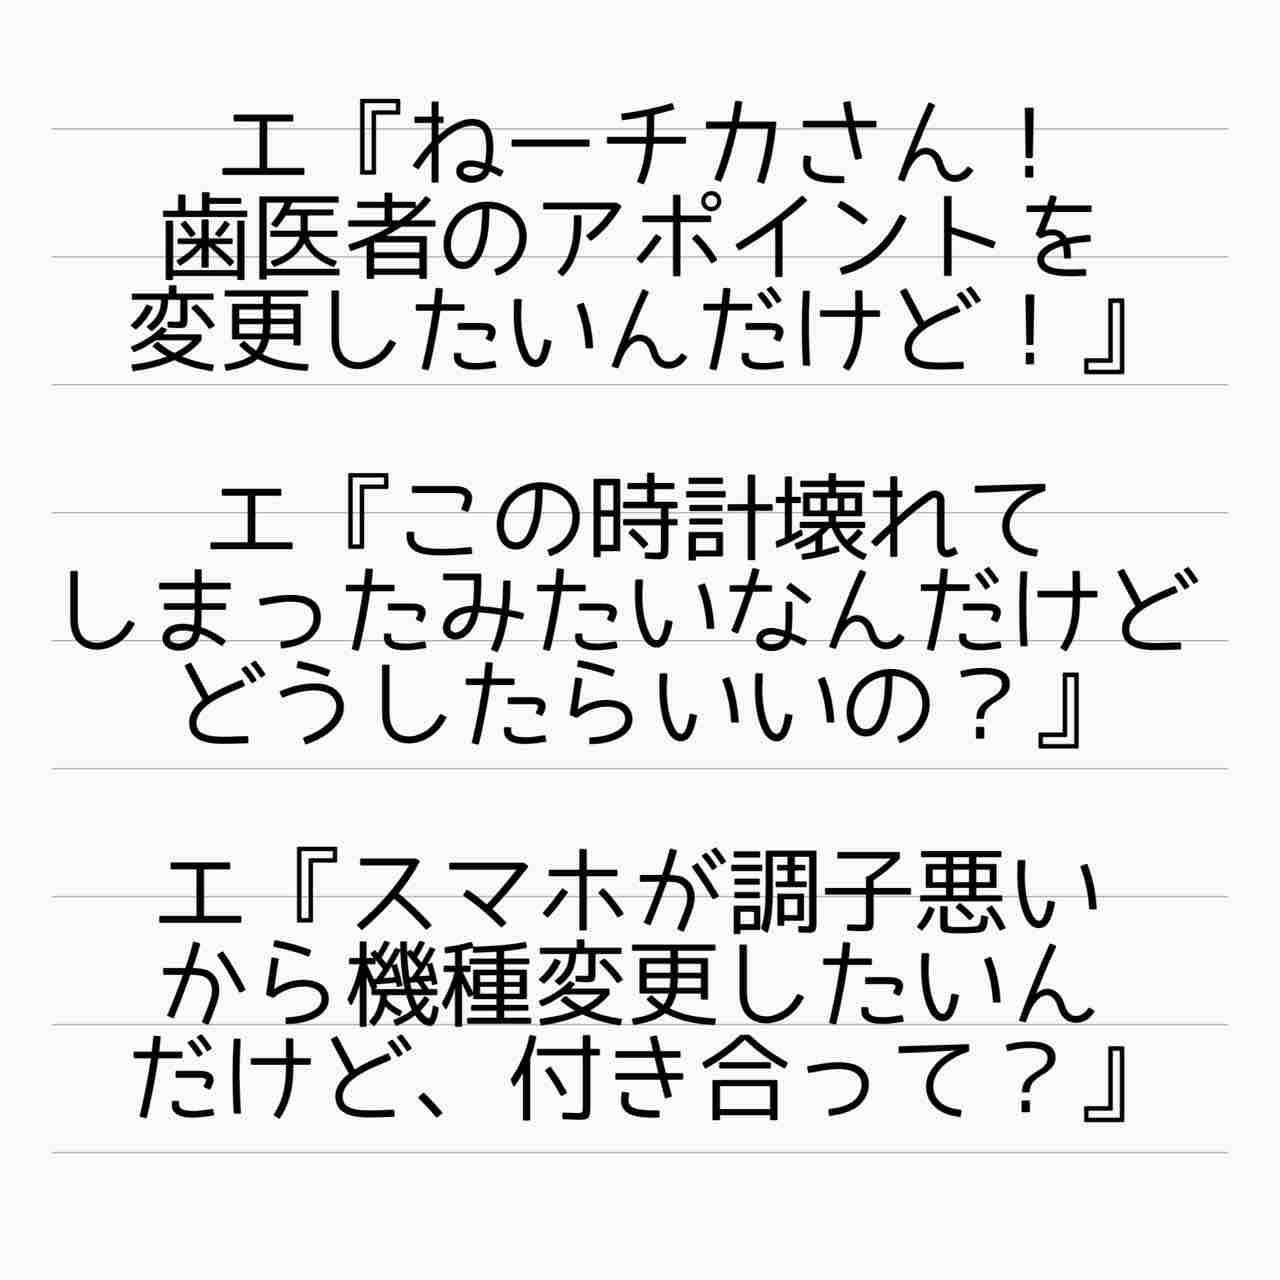 エ『ねーチカさん！
歯医者のアポイントを
変更したいんだけど！』
エ『この時計壊れて
しまったみたいなんだけど
どうしたらいいの？』
エ『スマホが調子悪い
から機種変更したいん
だけど、付き合って？』